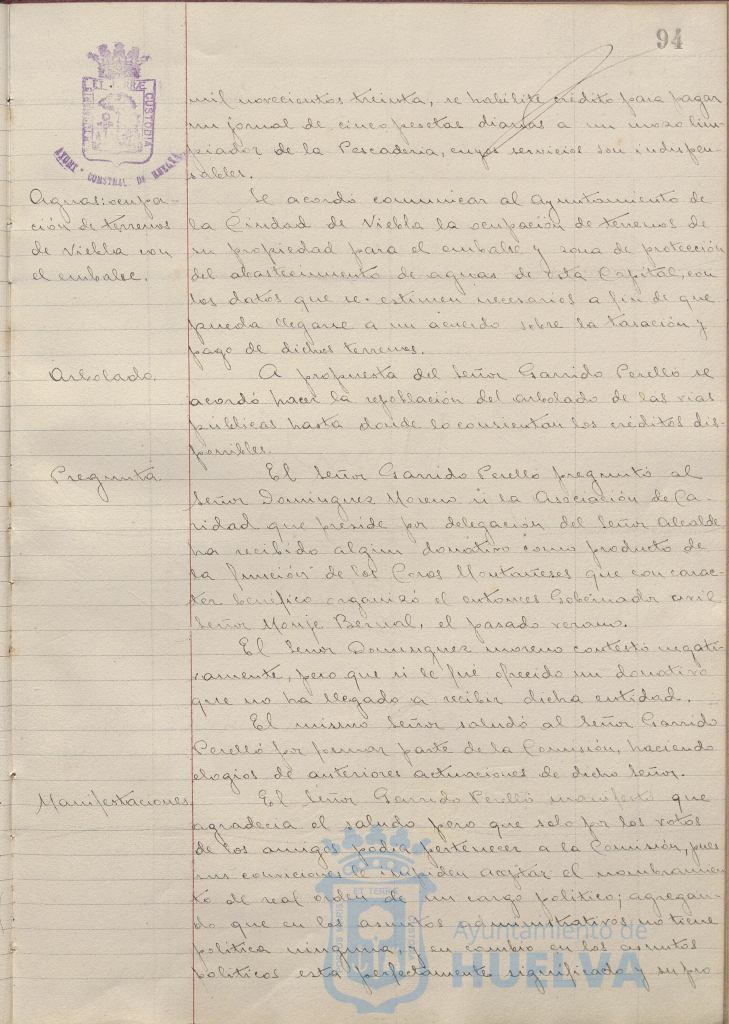 94
PORTUS MARIS
ET TERRÆ
CUSTODIA
AYUNT · CONSTNAL. DE HUELVA
mil novecientos treinta, se habilite crédito para pagar
un jornal de cinco pesetas diarias a un mozo lim-
piador de la Pescaderia, cuyos servicios son indispen-
sables.
Aguas: ocupa-
ción de terrenos
de Niebla con
el embalse.
Se acordó comunicar al Ayuntamiento de
la Ciudad de Niebla la ocupación de terrenos de
su propiedad para el embalse y zona de protección
del abastecimiento de aguas de esta Capital, con
los datos que se estimen necesarios a fin de que
pueda llegarse a un acuerdo sobre la tasación y
pago de dichos terrenos.
Arbolado.
A propuesta del Señor Garrido Perelló se
acordó hacer la repoblación del arbolado de las vias
públicas hasta donde lo consientan los créditos dis-
ponibles.
Pregunta.
El Señor Garrido Perelló preguntó al
Señor Dominguez Moreno si la Asociación de Ca-
ridad que preside por delegación del Señor Alcalde
ha recibido algun donativo como producto de
la función de los Coros Montañeses que con carac-
ter benéfico organizó el entonces Gobernador civil
Señor Monje Bernal, el pasado verano.
El Señor Dominguez moreno contestó negati-
vamente, pero que si le fué ofrecido un donativo
que no ha llegado a recibir dicha entidad.
El mismo Señor saludó al Señor Garrido
Perelló por formar parte de la Comisión, haciendo
elogios de anteriores actuaciones de dicho Señor.
Manifestaciones.
El Señor Garrido Perelló manifestó que
agradecia el saludo pero que solo por los votos
de los amigos podia pertenecer a la Comisión, pues
sus convicciones le impiden aceptar el nombramien-
to de real orden de un cargo politico; agregan-
do que en los asuntos administrativos no tiene
politica ninguna, y en cambio en los asuntos
politicos está perfectamente significado y su pro
Ayuntamiento de
HUELVA